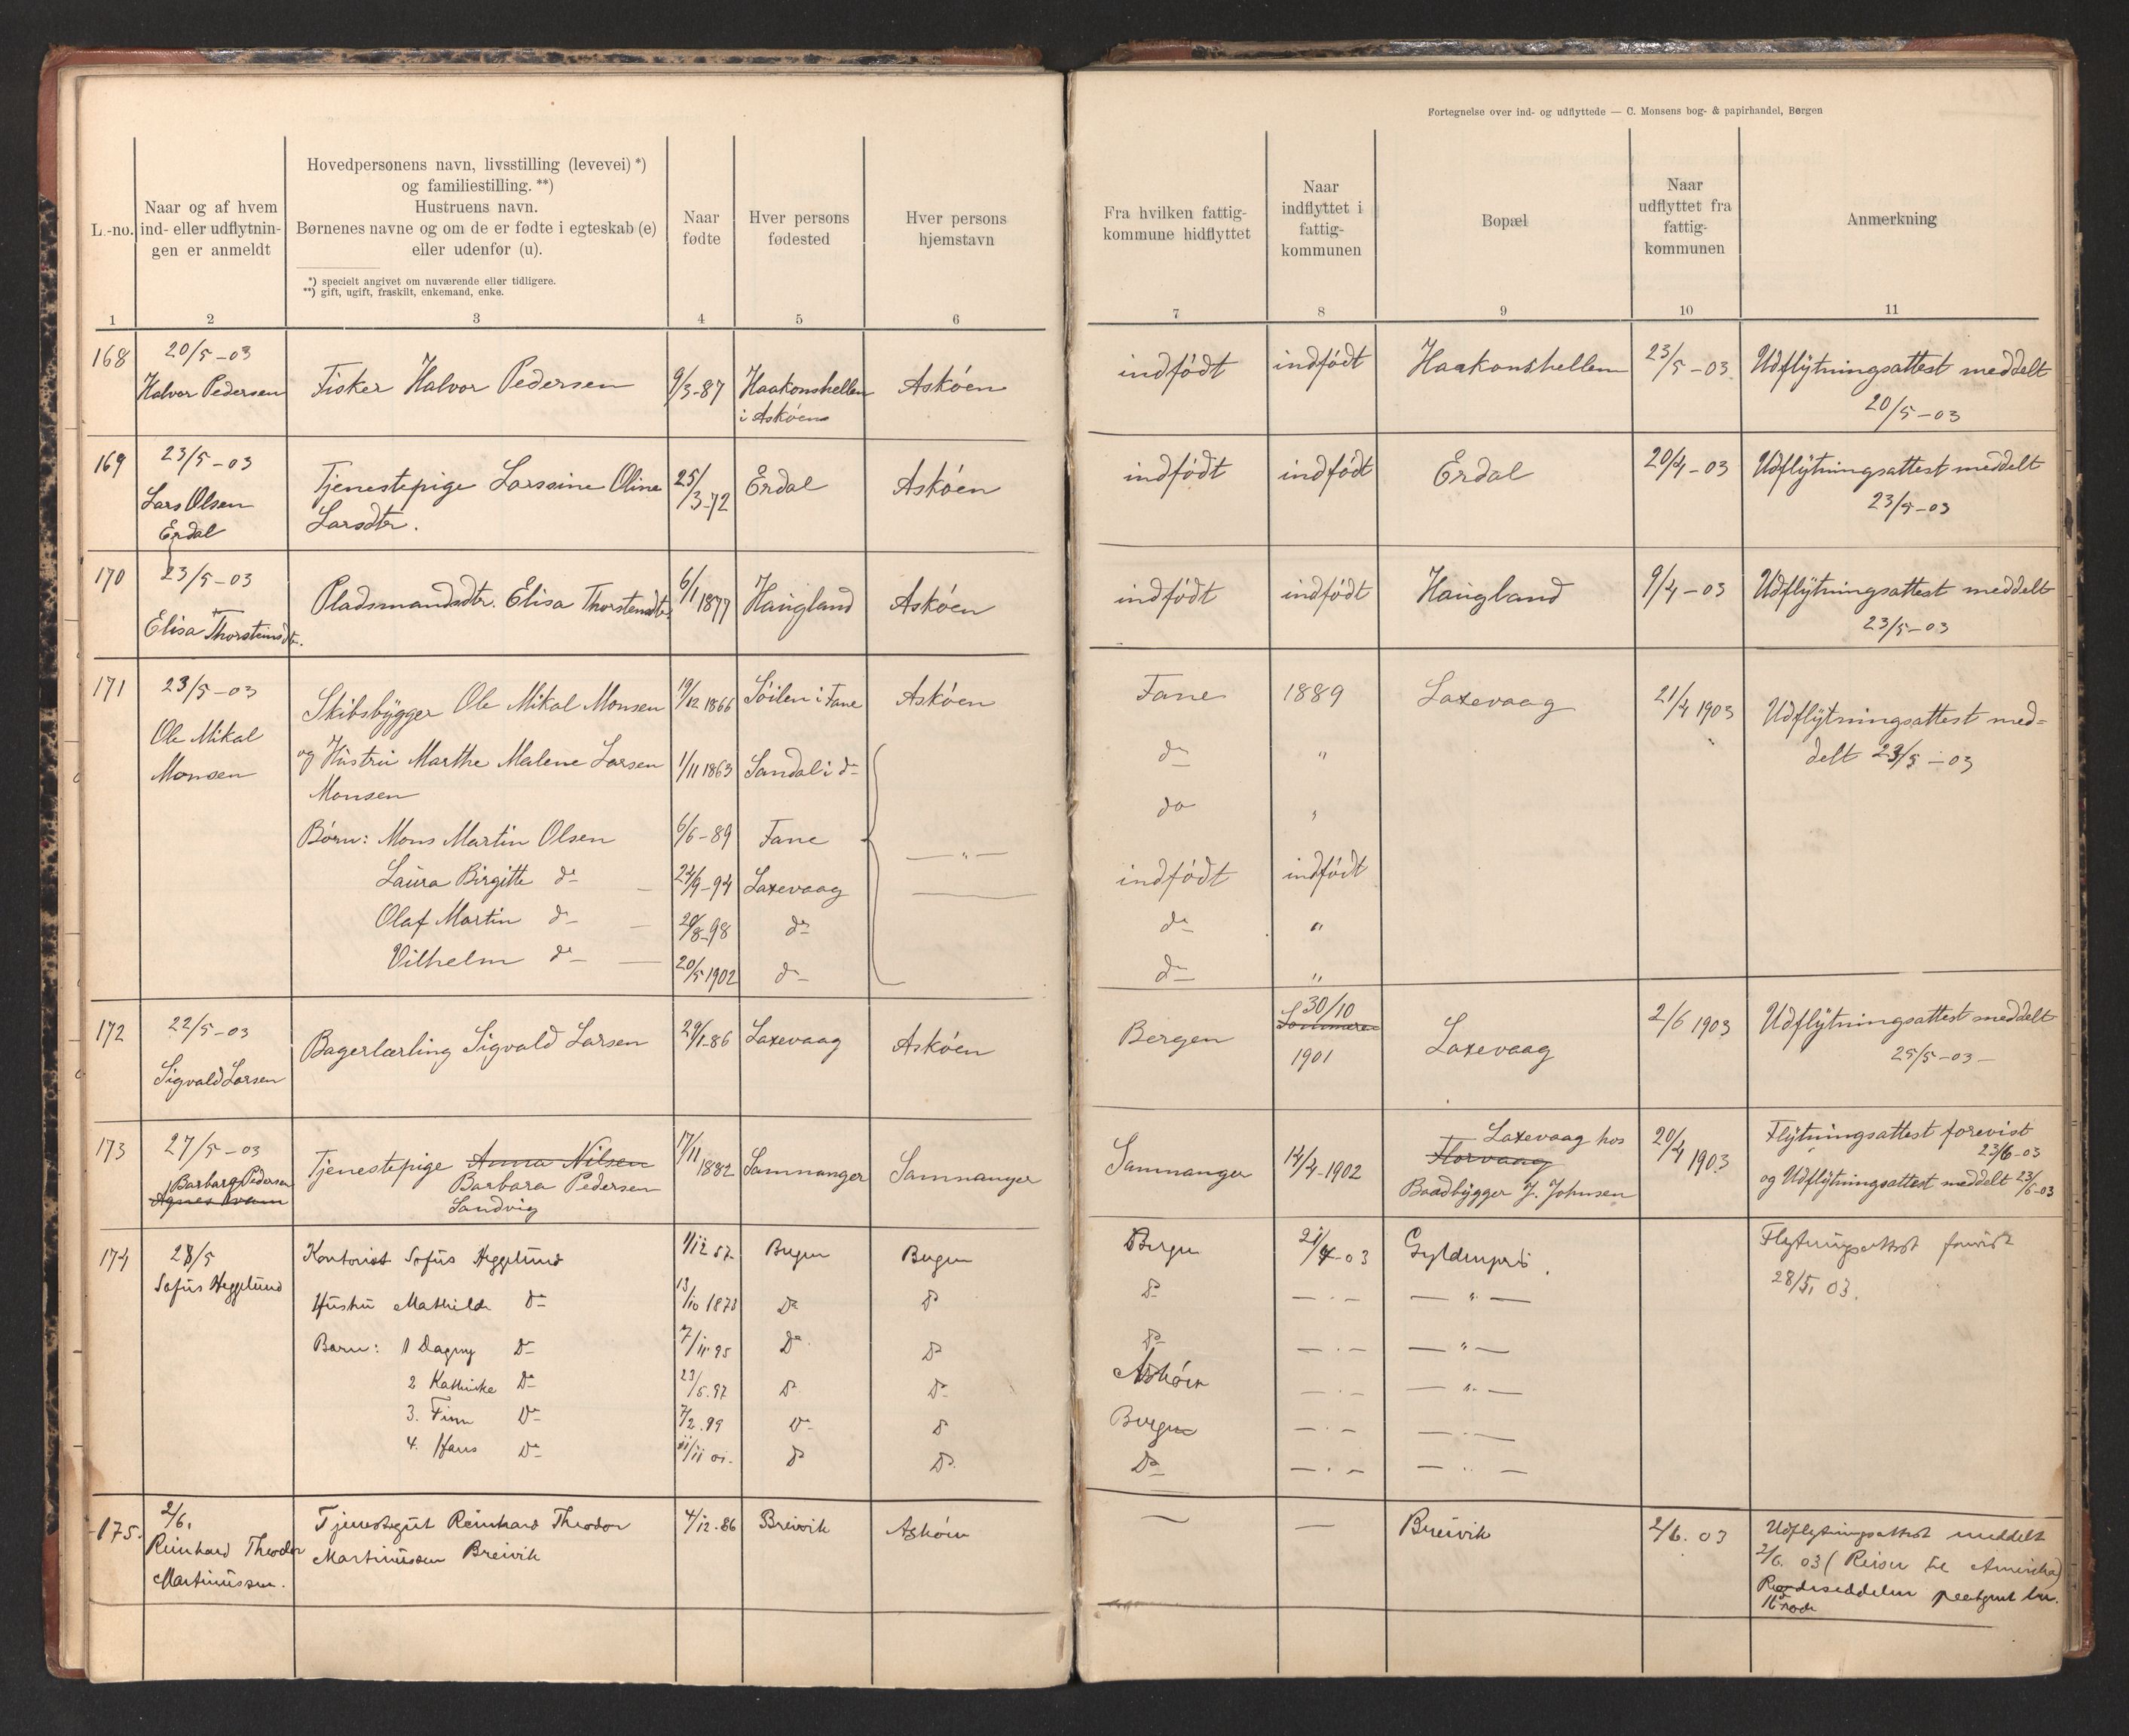 Fortegnelse over ind- og udflyttede — C. Monsens bog- & papirhandel, Bergen
L.-no.
Naar og af hvem
ind- eller udflytnin-
gen er anmeldt
Hovedpersonens navn, livsstilling (levevei) *)
og familiestilling. **)
Hustruens navn.
Børnenes navne og om de er fødte i egteskab (e)
eller udenfor (u).
*) specielt angivet om nuværende eller tidligere.
**) gift, ugift, fraskilt, enkemand, enke.
Naar
fødte
Hver persons
fødested
Hver persons
hjemstavn
Fra hvilken fattig-
kommune hidflyttet
Naar
indflyttet i
fattig-
kommunen
Bopæl
Naar
udflyttet fra
fattig-
kommunen
Anmerkning
1 2 3 4 5 6 7 8 9 10 11
168 20/5-03
Halvor Pedersen
Fisker Halvor Pedersen
9/3-87
Haakonshellen
i Askøen
Askøen
indfödt
indfödt
Haakonshellen
23/5-03
Udflÿtningsattest meddelt
20/5-03
169 23/5-03
Lars Olsen
Erdal
Tjenestepige Larssine Oline
Larsdtr.
25/3-72
Erdal
Askøen
indfödt
indfödt
Erdal
20/4-03
Udflÿtningsattest meddelt
23/5-03
170 23/5-03
Elisa Thorsteinsdtr.
Pladsmandsdtr. Elisa Thorstensdtr.
6/1 1877
Haugland
Askøen
indfödt
indfödt
Haugland
9/4-03
Udflÿtningsattest meddelt
23/5-03
171 23/5-03
Ole Mikal
Monsen
Skibsbÿgger Ole Mikal Monsen
19/12 1866
Söilen i Fane
Askøen
Fane
1889
Laxevaag
21/4 1903
Udflÿtningsattest med=
delt 23/5-03
og Hustru Marthe Malene Larsen
Monsen
1/11 1863
Sandal i do
do
"
do
"
Børn: Mons Martin Olsen
6/6-89
Fane
— " —
Laura Birgitte do —
24/9-94
Laxevaag
indfödt
indfödt
Olaf Martin do —
20/8-98
do
do
"
Vilhelm do —
20/5 1902
do
do
"
172 22/5-03
Sigvald Larsen
Bagerlærling Sigvald Larsen
29/1-86
Laxevaag
Askøen
Bergen
30/10
Sommeren
1901
Laxevaag
2/6 1903
Udflÿtningsattest meddelt
25/5-03-
173 27/5-03
Barbara Pedersen
Tjenestepige Anna Nilsen
Barbara Pedersen
Sandvig
17/11 1882
Samnanger
Samnanger
Samnanger
14/4-1902
Laxevaag hos
Florvaag
Baadbÿgger J. Johnsen
20/4 1903
Flÿtningsattest forevist
23/6-03
og Udflÿtningsattest meddelt 23/6-03
174 28/5
Sofus Hegglund
Kontorist Sofus Hegglund
Bergen
Bergen
Bergen
21/4-03
Gyldenpris.
Flytningsattest forevist
28/5. 03.
Hustru Mathilde Do
Do
Do
Do
— . —
— " —
Barn: 1 Dagny Do
7/11.95
Do
Do
Do
— . —
— " —
2 Kathinke Do
23/6.97
Do
Do
Askøen
— . —
— " —
3. Finn Do
7/2.99
Do
Do
Bergen
— . —
— . —
4. Hans Do
11/11 01.
Do
Do
Do
— . —
— " —
175. 2/6.
Reinhard Theodor
Martinussen.
Tjenestegut Reinhard Theodor
Martinussen Breivik
4/12.86
Breivik
Askøen
—
—
Breivik
2/6. 03
Udflytningsattest meddelt
2/6. 03 (Reiser til Amerika)